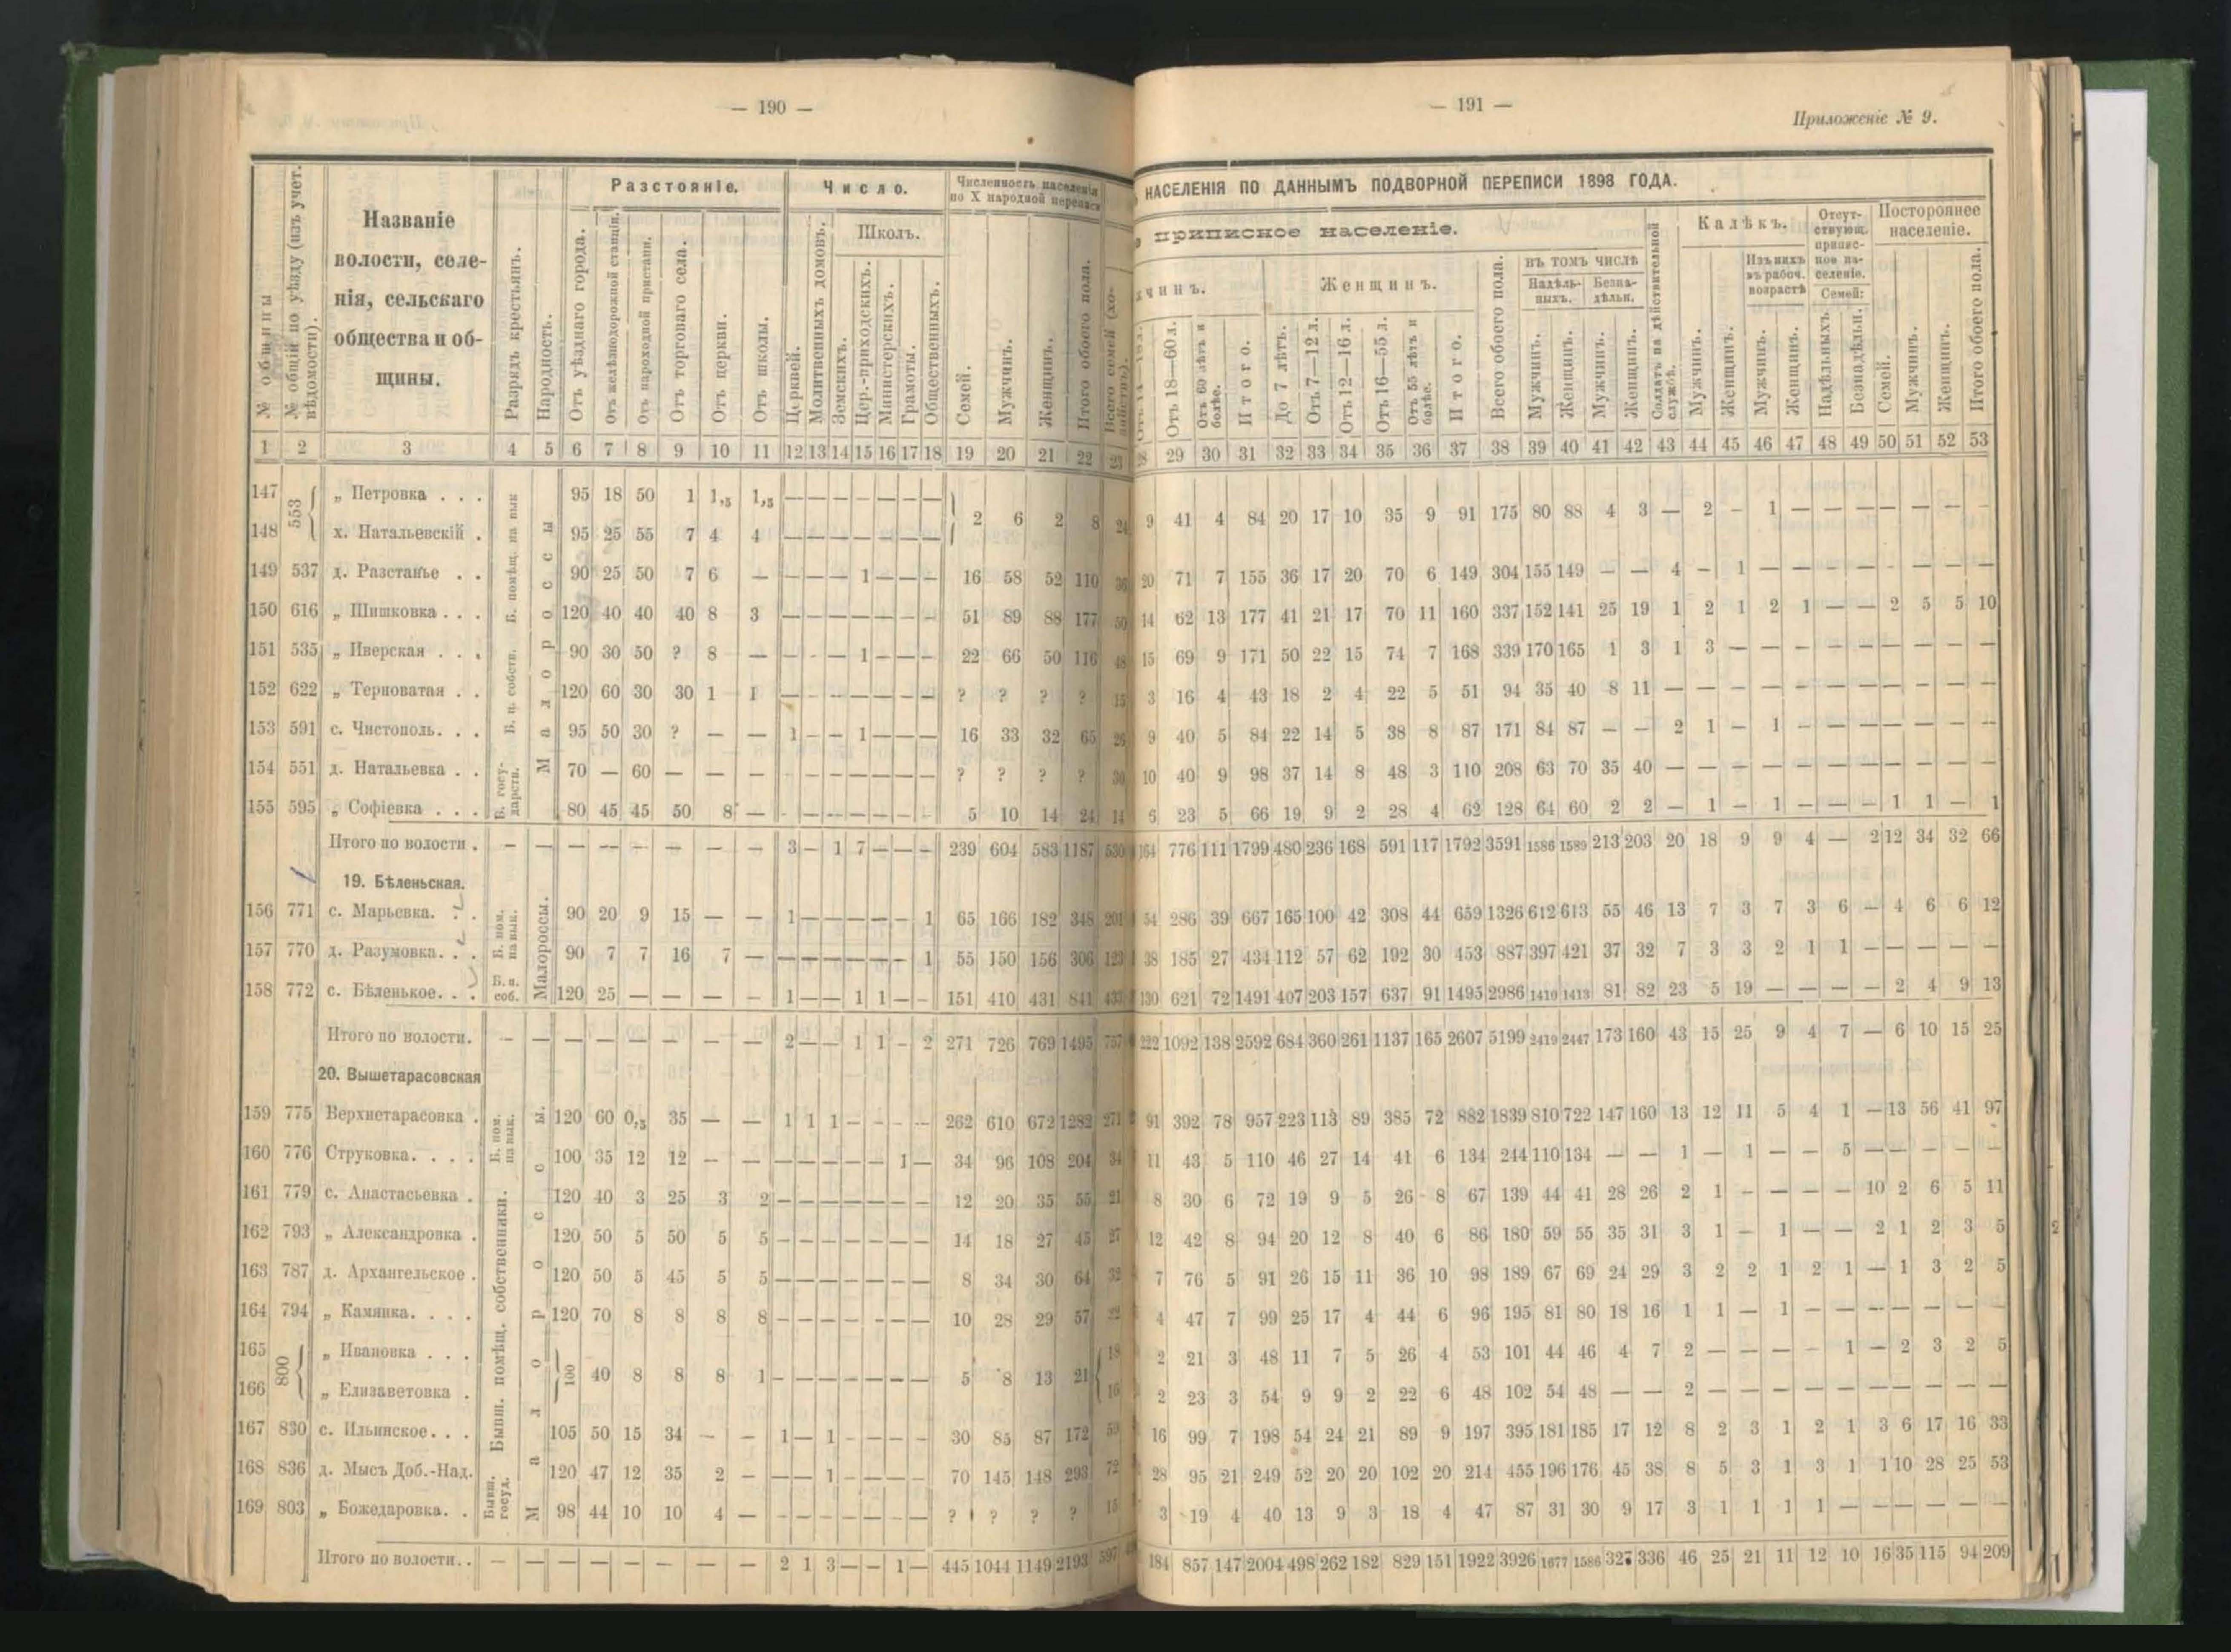 — 190 —
Названіе волости, селенія, сельскаго общества и общины.
№ общины
№ общій по уѣзду (изъ учет. вѣдомости).
Разрядъ крестьянъ.
Народность.
Разстояніе.
Отъ уѣзднаго города.
Отъ желѣзнодорожной станціи.
Отъ пароходной пристани.
Отъ торговаго села.
Отъ церкви.
Отъ школы.
Число.
Церквей.
Молитвенныхъ домовъ.
Школъ.
Земскихъ.
Цер.-приходскихъ.
Министерскихъ.
Грамоты.
Общественныхъ.
Численность населенія по X народной переписи
Семей.
Мужчинъ.
Женщинъ.
Итого обоего пола.
1 2 3 4 5 6 7 8 9 10 11 12 13 14 15 16 17 18 19 20 21 22 23
147 553 „ Петровка . . . 95 18 50 1 1,5 1,5 — — — — — — —
148 х. Натальевскій . 95 25 55 7 4 4 — — — — — — — 2 6 2 8 24
149 537 д. Разстанье . . 90 25 50 7 6 — — — — 1 — — — 16 58 52 110 36
150 616 „ Шишковка . . . 120 40 40 40 8 3 — — — — — — — 51 89 88 177 50
151 535 „ Иверская . . . 90 30 50 ? 8 — — — — 1 — — — 22 66 50 116 48
152 622 „ Терноватая . . 120 60 30 30 1 1 — — — — — — — ? ? ? ? 15
153 591 с. Чистополь. . . 95 50 30 ? — — 1 — — 1 — — — 16 33 32 65 26
154 551 д. Натальевка . . 70 — 60 — — — — — — — — — — ? ? ? ? 30
155 595 „ Софіевка . . . 80 45 45 50 8 — — — — — — — — 5 10 14 24 14
Итого по волости . — — — — — — — — 3 — 1 7 — — — 239 604 583 1187 530
19. Бѣленьская.
156 771 с. Марьевка. . . 90 20 9 15 — — 1 — — — — — 1 65 166 182 348 201
157 770 д. Разумовка. . . 90 7 7 16 7 — — — — — — — 1 55 150 156 306 123
158 772 с. Бѣленькое. . . 120 25 — — — — 1 — — 1 1 — — 151 410 431 841 433
Итого по волости. — — — — — — — — 2 — — 1 1 — 2 271 726 769 1495 757
20. Вышетарасовская
159 775 Верхнетарасовка . 120 60 0,5 35 — — 1 1 1 — — — — 262 610 672 1282 271
160 776 Струковка. . . . 100 35 12 12 — — — — — — — 1 — 34 96 108 204 34
161 779 с. Анастасьевка . 120 40 3 25 3 2 — — — — — — — 12 20 35 55 21
162 793 „ Александровка . 120 50 5 50 5 5 — — — — — — — 14 18 27 45 27
163 787 д. Архангельское . 120 50 5 45 5 5 — — — — — — — 8 34 30 64 32
164 794 „ Камянка. . . . 120 70 8 8 8 8 — — — — — — — 10 28 29 57 22
165 800 „ Ивановка . . . 18
166 „ Елизаветовка . 100 40 8 8 8 1 — — — — — — — 5 8 13 21 16
167 830 с. Ильинское. . . 105 50 15 34 — — 1 — 1 — — — — 30 85 87 172 59
168 836 д. Мысъ Доб.-Над. 120 47 12 35 2 — — — 1 — — — — 70 145 148 293 72
169 803 „ Божедаровка. . 98 44 10 10 4 — — — — — — — — ? ? ? ? 15
Итого по волости. . — — — — — — — — 2 1 3 — — 1 — 445 1044 1149 2193 597
Б. помѣщ. на вык
Б. п. собств.
Б. государств.
Малороссы
Б. пом. на вык.
Б. п. соб.
Малороссы.
Б. пом. на вык.
Бывш. помѣщ. собственники.
Бывш. госуд.
Малороссы.
— 191 —
Приложеніе № 9.
НАСЕЛЕНІЯ ПО ДАННЫМЪ ПОДВОРНОЙ ПЕРЕПИСИ 1898 ГОДА.
приписное населеніе.
чинъ.
Отъ 18—60 л.
Отъ 60 лѣтъ и болѣе.
Итого.
Женщинъ.
До 7 лѣтъ.
Отъ 7—12 л.
Отъ 12—16 л.
Отъ 16—55 л.
Отъ 55 лѣтъ и болѣе.
Итого.
Всего обоего пола.
въ томъ числѣ
Надѣльныхъ.
Безнадѣльн.
Мужчинъ.
Женщинъ.
Мужчинъ.
Женщинъ.
Солдатъ на дѣйствительной службѣ.
Калѣкъ.
Мужчинъ.
Женщинъ.
Изъ нихъ въ рабоч. возрастѣ
Мужчинъ.
Женщинъ.
Отсутствующ. приписное населеніе.
Семей:
Надѣльныхъ.
Безнадѣльн.
Постороннее населеніе.
Семей.
Мужчинъ.
Женщинъ.
Итого обоего пола.
28 29 30 31 32 33 34 35 36 37 38 39 40 41 42 43 44 45 46 47 48 49 50 51 52 53
9 41 4 84 20 17 10 35 9 91 175 80 88 4 3 — 2 — 1 — — — — — — —
20 71 7 155 36 17 20 70 6 149 304 155 149 — — 4 — 1 — — — — — — — —
14 62 13 177 41 21 17 70 11 160 337 152 141 25 19 1 2 1 2 1 — — 2 5 5 10
15 69 9 171 50 22 15 74 7 168 339 170 165 1 3 1 3 — — — — — — — — —
3 16 4 43 18 2 4 22 5 51 94 35 40 8 11 — — — — — — — — — — —
9 40 5 84 22 14 5 38 8 87 171 84 87 — — 2 1 — 1 — — — — — — —
10 40 9 98 37 14 8 48 3 110 208 63 70 35 40 — — — — — — — — — — —
6 23 5 66 19 9 2 28 4 62 128 64 60 2 2 — 1 — 1 — — — 1 1 — 1
164 776 111 1799 480 236 168 591 117 1792 3591 1586 1589 213 203 20 18 9 9 4 — 2 12 34 32 66
54 286 39 667 165 100 42 308 44 659 1326 612 613 55 46 13 7 3 7 3 6 — 4 6 6 12
38 185 27 434 112 57 62 192 30 453 887 397 421 37 32 7 3 3 2 1 1 — — — — —
130 621 72 1491 407 203 157 637 91 1495 2986 1410 1413 81 82 23 5 19 — — — — 2 4 9 13
222 1092 138 2592 684 360 261 1137 165 2607 5199 2419 2447 173 160 43 15 25 9 4 7 — 6 10 15 25
91 392 78 957 223 113 89 385 72 882 1839 810 722 147 160 13 12 11 5 4 1 — 13 56 41 97
11 43 5 110 46 27 14 41 6 134 244 110 134 — — 1 — 1 — — 5 — — — — —
8 30 6 72 19 9 5 26 8 67 139 44 41 28 26 2 1 — — — — 10 2 6 5 11
12 42 8 94 20 12 8 40 6 86 180 59 55 35 31 3 1 — 1 — — 2 1 2 3 5
7 76 5 91 26 15 11 36 10 98 189 67 69 24 29 3 2 2 1 2 1 — 1 3 2 5
4 47 7 99 25 17 4 44 6 96 195 81 80 18 16 1 1 — 1 — — — — — — —
2 21 3 48 11 7 5 26 4 53 101 44 46 4 7 2 — — — — 1 — 2 3 2 5
2 23 3 54 9 9 2 22 6 48 102 54 48 — — 2 — — — — — — — — — —
16 99 7 198 54 24 21 89 9 197 395 181 185 17 12 8 2 3 1 2 1 3 6 17 16 33
28 95 21 249 52 20 20 102 20 214 455 196 176 45 38 8 5 3 1 3 1 1 10 28 25 53
3 19 4 40 13 9 3 18 4 47 87 31 30 9 17 3 1 1 1 1 — — — — — —
184 857 147 2004 498 262 182 829 151 1922 3926 1677 1586 327 336 46 25 21 11 12 10 16 35 115 94 209